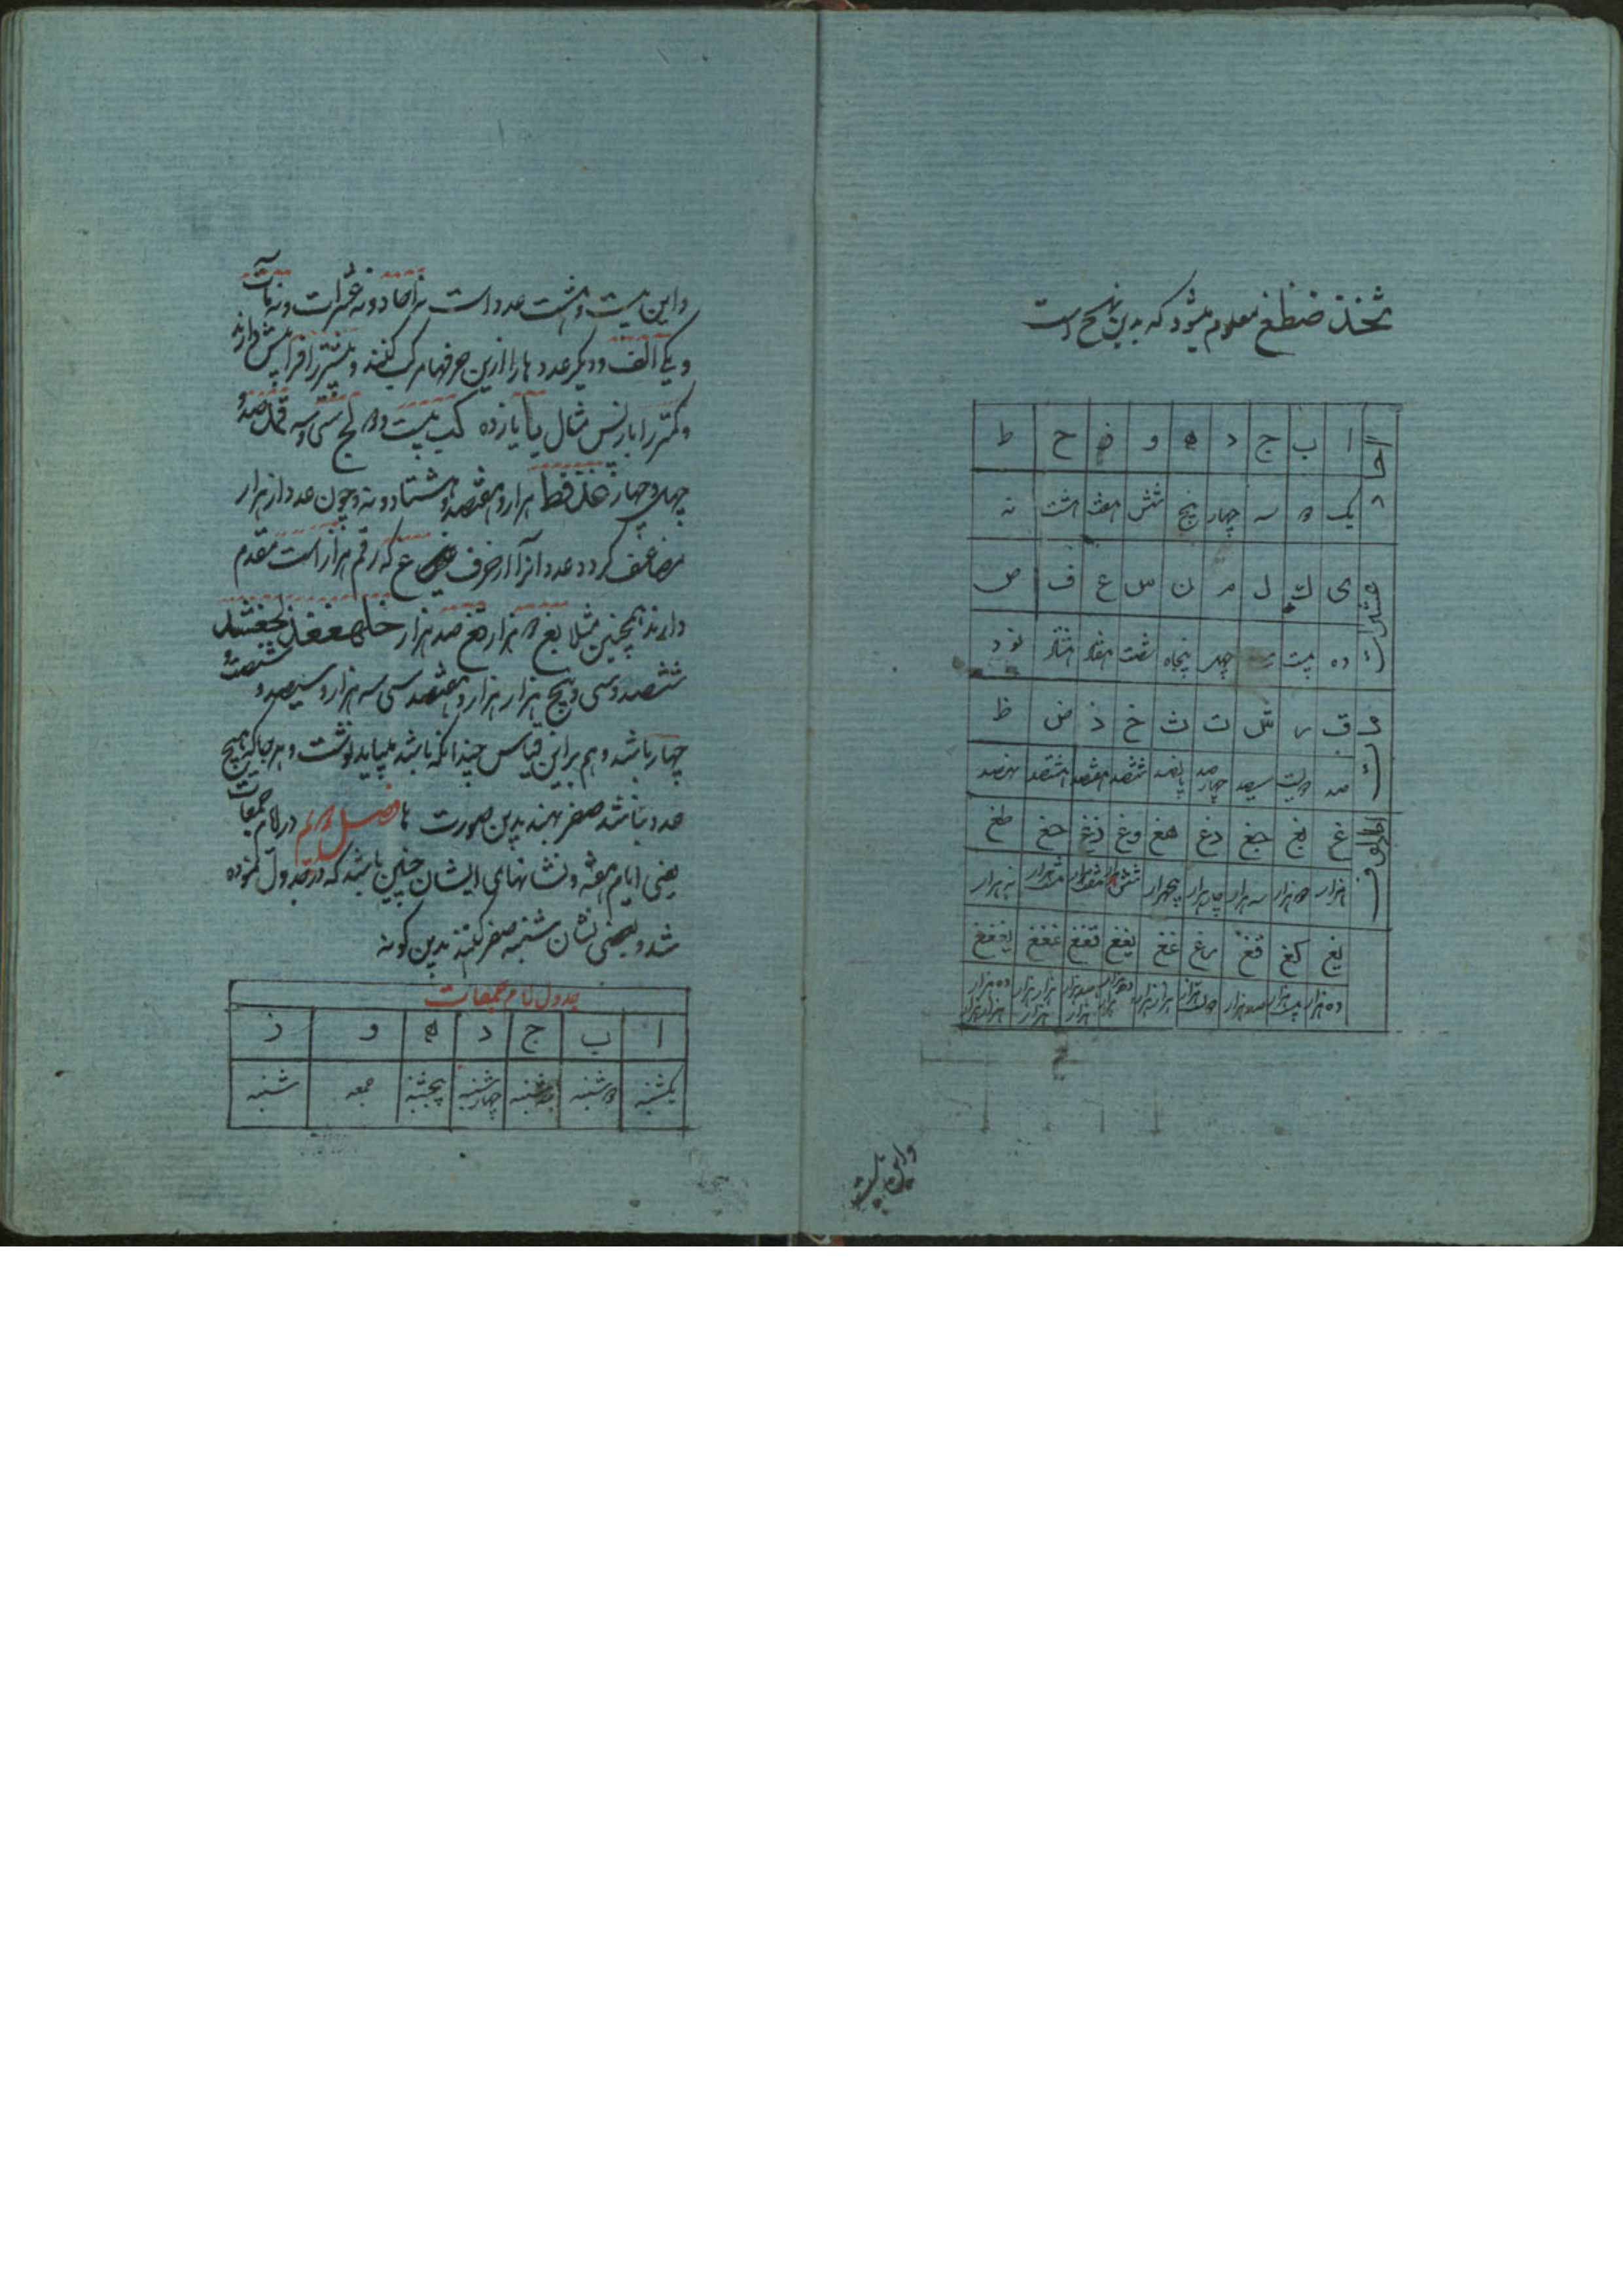 ثخذ ضظغ معلوم میشود که بدین نهج است
احاد
ا ب ج د ه و ز ح ط
یک دو سه چهار پنج شش هفت هشت نه
عشرات
ی ک ل م ن س ع ف ص
ده بیست چهل پنجاه شصت هفتاد هشتاد نود
ق ر ش ت ث خ ذ ض ظ
صد دویست سیصد چهارصد پانصد ششصد هفتصد هشتصد نهصد
غ بغ جغ دغ هغ وغ زغ حغ طغ
هزار دوهزار سه هزار چهارهزار پنجهزار نه هزار
یغ کغ قغ رغ غغ یغغ قغغ غغغ یغغغ
ده هزار بیست هزار صد هزار
واین بیست
واین بیست و هشت عدد است نه احاد و نه عشرات و نه مآت
و یکی الف و دیگر عدد ها را ازین حرفها مرکب کنند و بیشتر را فرا پیش دارند
و کمتر را باز پس مثال یا یازده کب بیست و دو لج سی و سه قمد صد و
چهل و چهار غذفط هزار و هفتصد و هشتاد و نه و چون عدد از هزار
مضاعف گردد عدد آنرا از حرف غ که رقم هزار است مقدم
دارند همچنین مثلا بغ دو هزار قغ صد هزار
ششصد و سی و پنج هزار هزار و هفتصد سی سه هزار و سیصد و شصت و
چهار باشد و هم براین قیاس چندانکه باشد بباید نوشت و هر جا که هیچ
عدد نباشد صفر نهند بدین صورت ها فصل دوم در نام جمعات
یعنی ایام هفته و نشانهای ایشان چنین باشد که در جدول نموده
شد و بعضی نشان شنبه صفر کنند بدین گونه
جدول نام جمعات
ا ب ج د ه و ز
یکشنبه دوشنبه سه شنبه چهارشنبه پنجشنبه جمعه شنبه